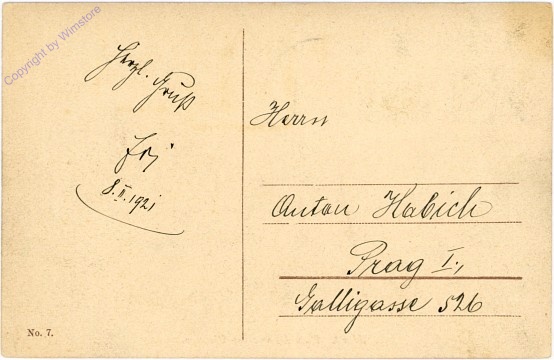 Copyright by Wimstore
Herzl. Gruß
8.II.1921
Herrn
Anton Habich
Prag I.,
Galligasse 526
No. 7.